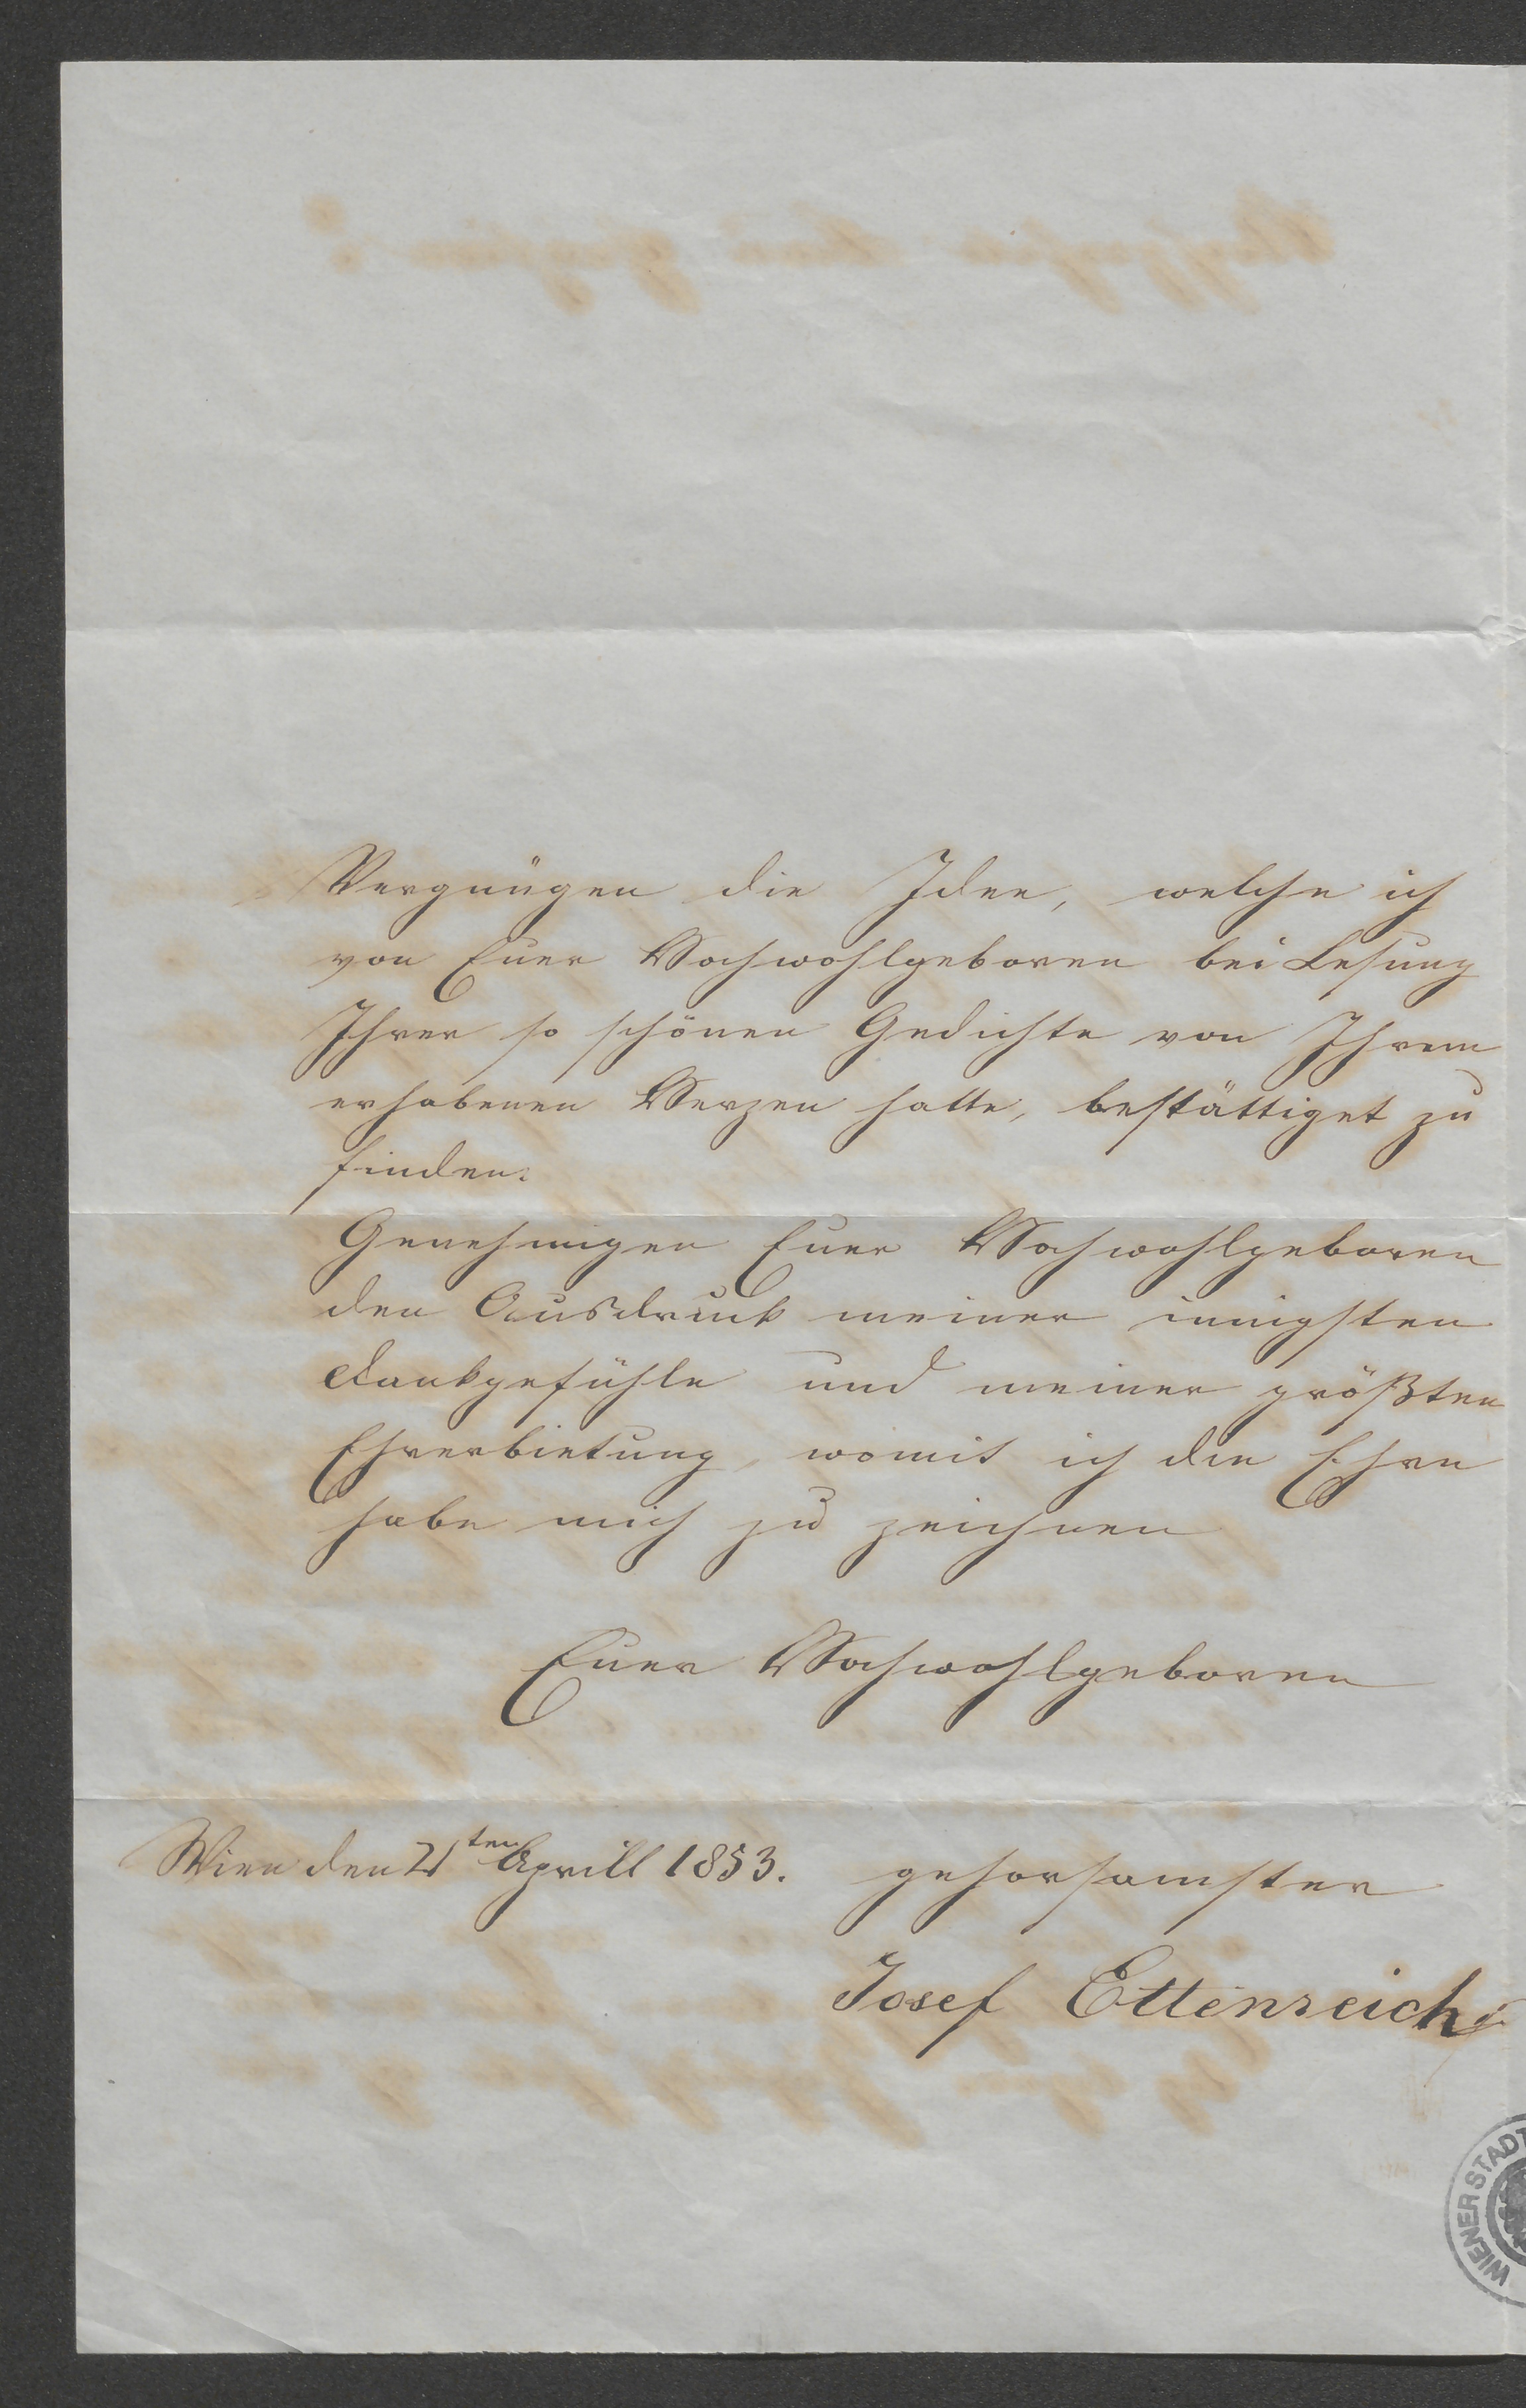 Vergnügen die Idee, welche ich
von Euer Hochwohlgeboren bei Lesung
Ihrer so schönen Gedichte von Ihrem
erhabenen Herzen hatte, bestättiget zu
finden.
Genehmigen Euer Hochwohlgeboren
den Ausdruck meiner innigsten
Dankgefühle und meiner größten
Ehrerbietung, womit ich die Ehre
habe mich zu zeichnen
Euer Hochwohlgeboren
Wien den 21ten Aprill 1853. gehorsamster
Josef Ettenreich
WIENER STADT